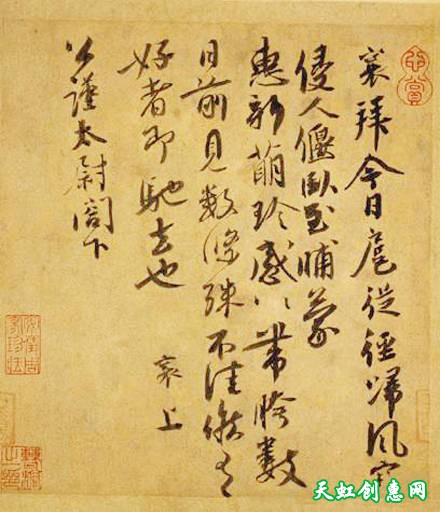 襄拜今日扈從徑歸風寒
侵人偃臥至晡蒙
惠新萌珍感〻帶胯數
日前見數條殊不佳候有
好者即馳去也
襄上
公謹太尉閤下
天虹创惠网